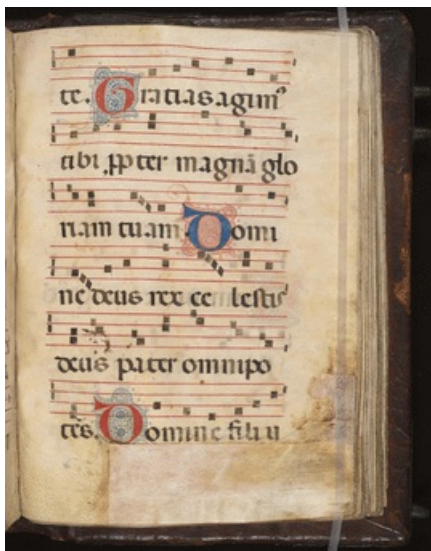 te. Gratias agimꝰ
tibi ꝓpter magnā glo
riam tuam Domi
ne deus rex ce lestis
deus pater omnipo
tēs. Domine fili u